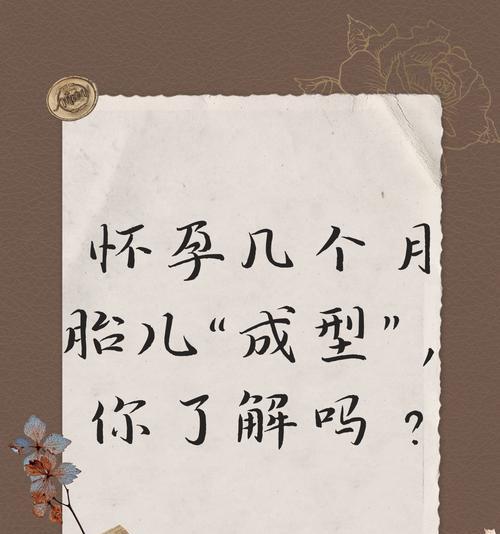 怀孕几个月
胎儿“成型”，
你了解吗？